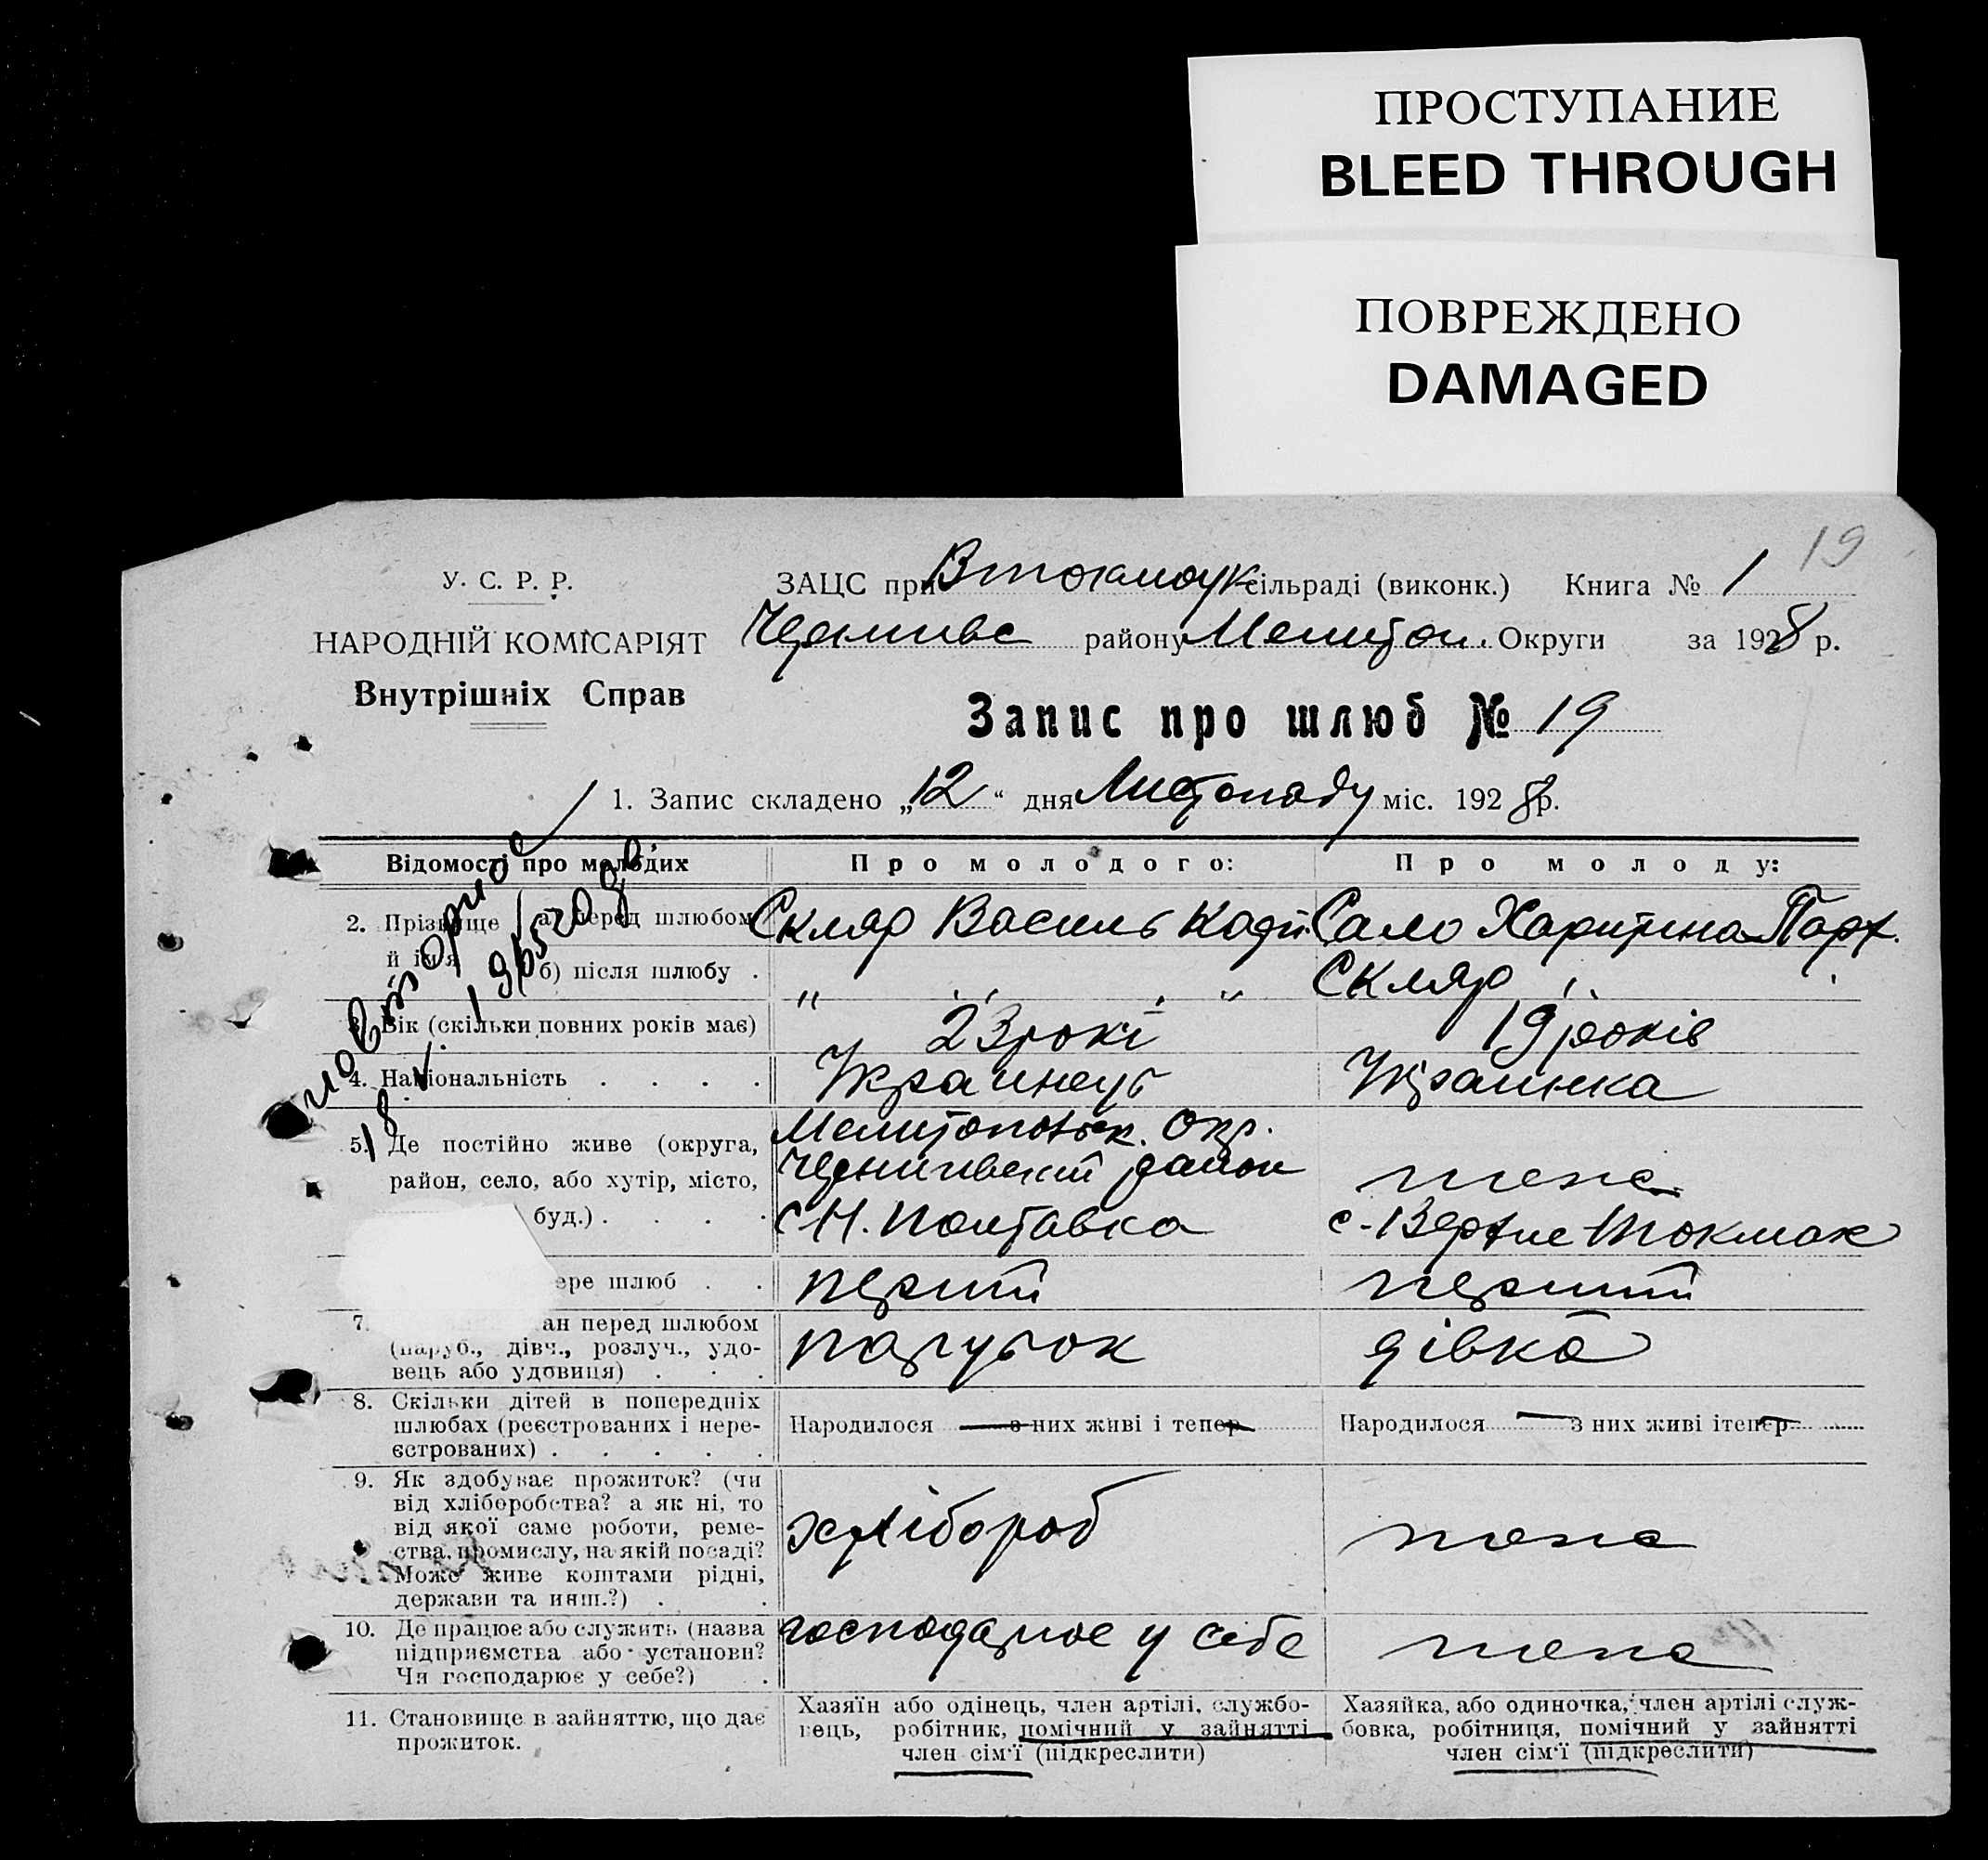 ПРОСТУПАНИЕ
BLEED THROUGH
ПОВРЕЖДЕНО
DAMAGED
19
У. С. Р. Р.
НАРОДНІЙ КОМІСАРІЯТ
Внутрішніх Справ
ЗАЦС при Втокмоцк сільраді (виконк.) Книга № 1
району Мелитоп. Округи за 1928 р.
Запис про шлюб № 19
1. Запис складено „12“ дня Листопаду міс. 1928 р.
повторное
18 V. 1965 года
Відомості про молодих Про молодого: Про молоду:
2. Прізвище й ім'я а) перед шлюбом Скляр Василь Сало Харитина Парф.
б) після шлюбу . „ „ Скляр „
3. Вік (скільки повних років має) 23 рокі 19 років
4. Національність . . . . Украинець Украинка
5. Де постійно живе (округа, Мелитопольск. Окр.
район, село, або хутір, місто, Чернигивский район теже
буд.) . . . . с Н. Полтавка с. Верхне Токмак
ере шлюб . . перший перший
7. ан перед шлюбом
(паруб., дівч., розлуч., удо-
вець або удовиця) . . . парубок дівка
8. Скільки дітей в попередніх
шлюбах (реєстрованих і нере-
єстрованих) . . . . . Народилося — з них живі і тепер — Народилося — з них живі ітепер —
9. Як здобуває прожиток? (чи
від хліборобства? а як ні, то
від якої саме роботи, реме-
ства, промислу, на якій посаді?
Може живе коштами рідні,
держави та инш.?) . . хлібороб теже
10. Де працює або служить (назва
підприємства або установи?
Чи господарює у себе?) . господарює у себе теже
11. Становище в зайняттю, що дає
прожиток.
Хазяїн або одінець, член артілі, службо-
вець, робітник, помічний у зайнятті
член сім'ї (підкреслити)
Хазяйка, або одиночка, член артілі служ-
бовка, робітниця, помічний у зайнятті
член сім'ї (підкреслити)